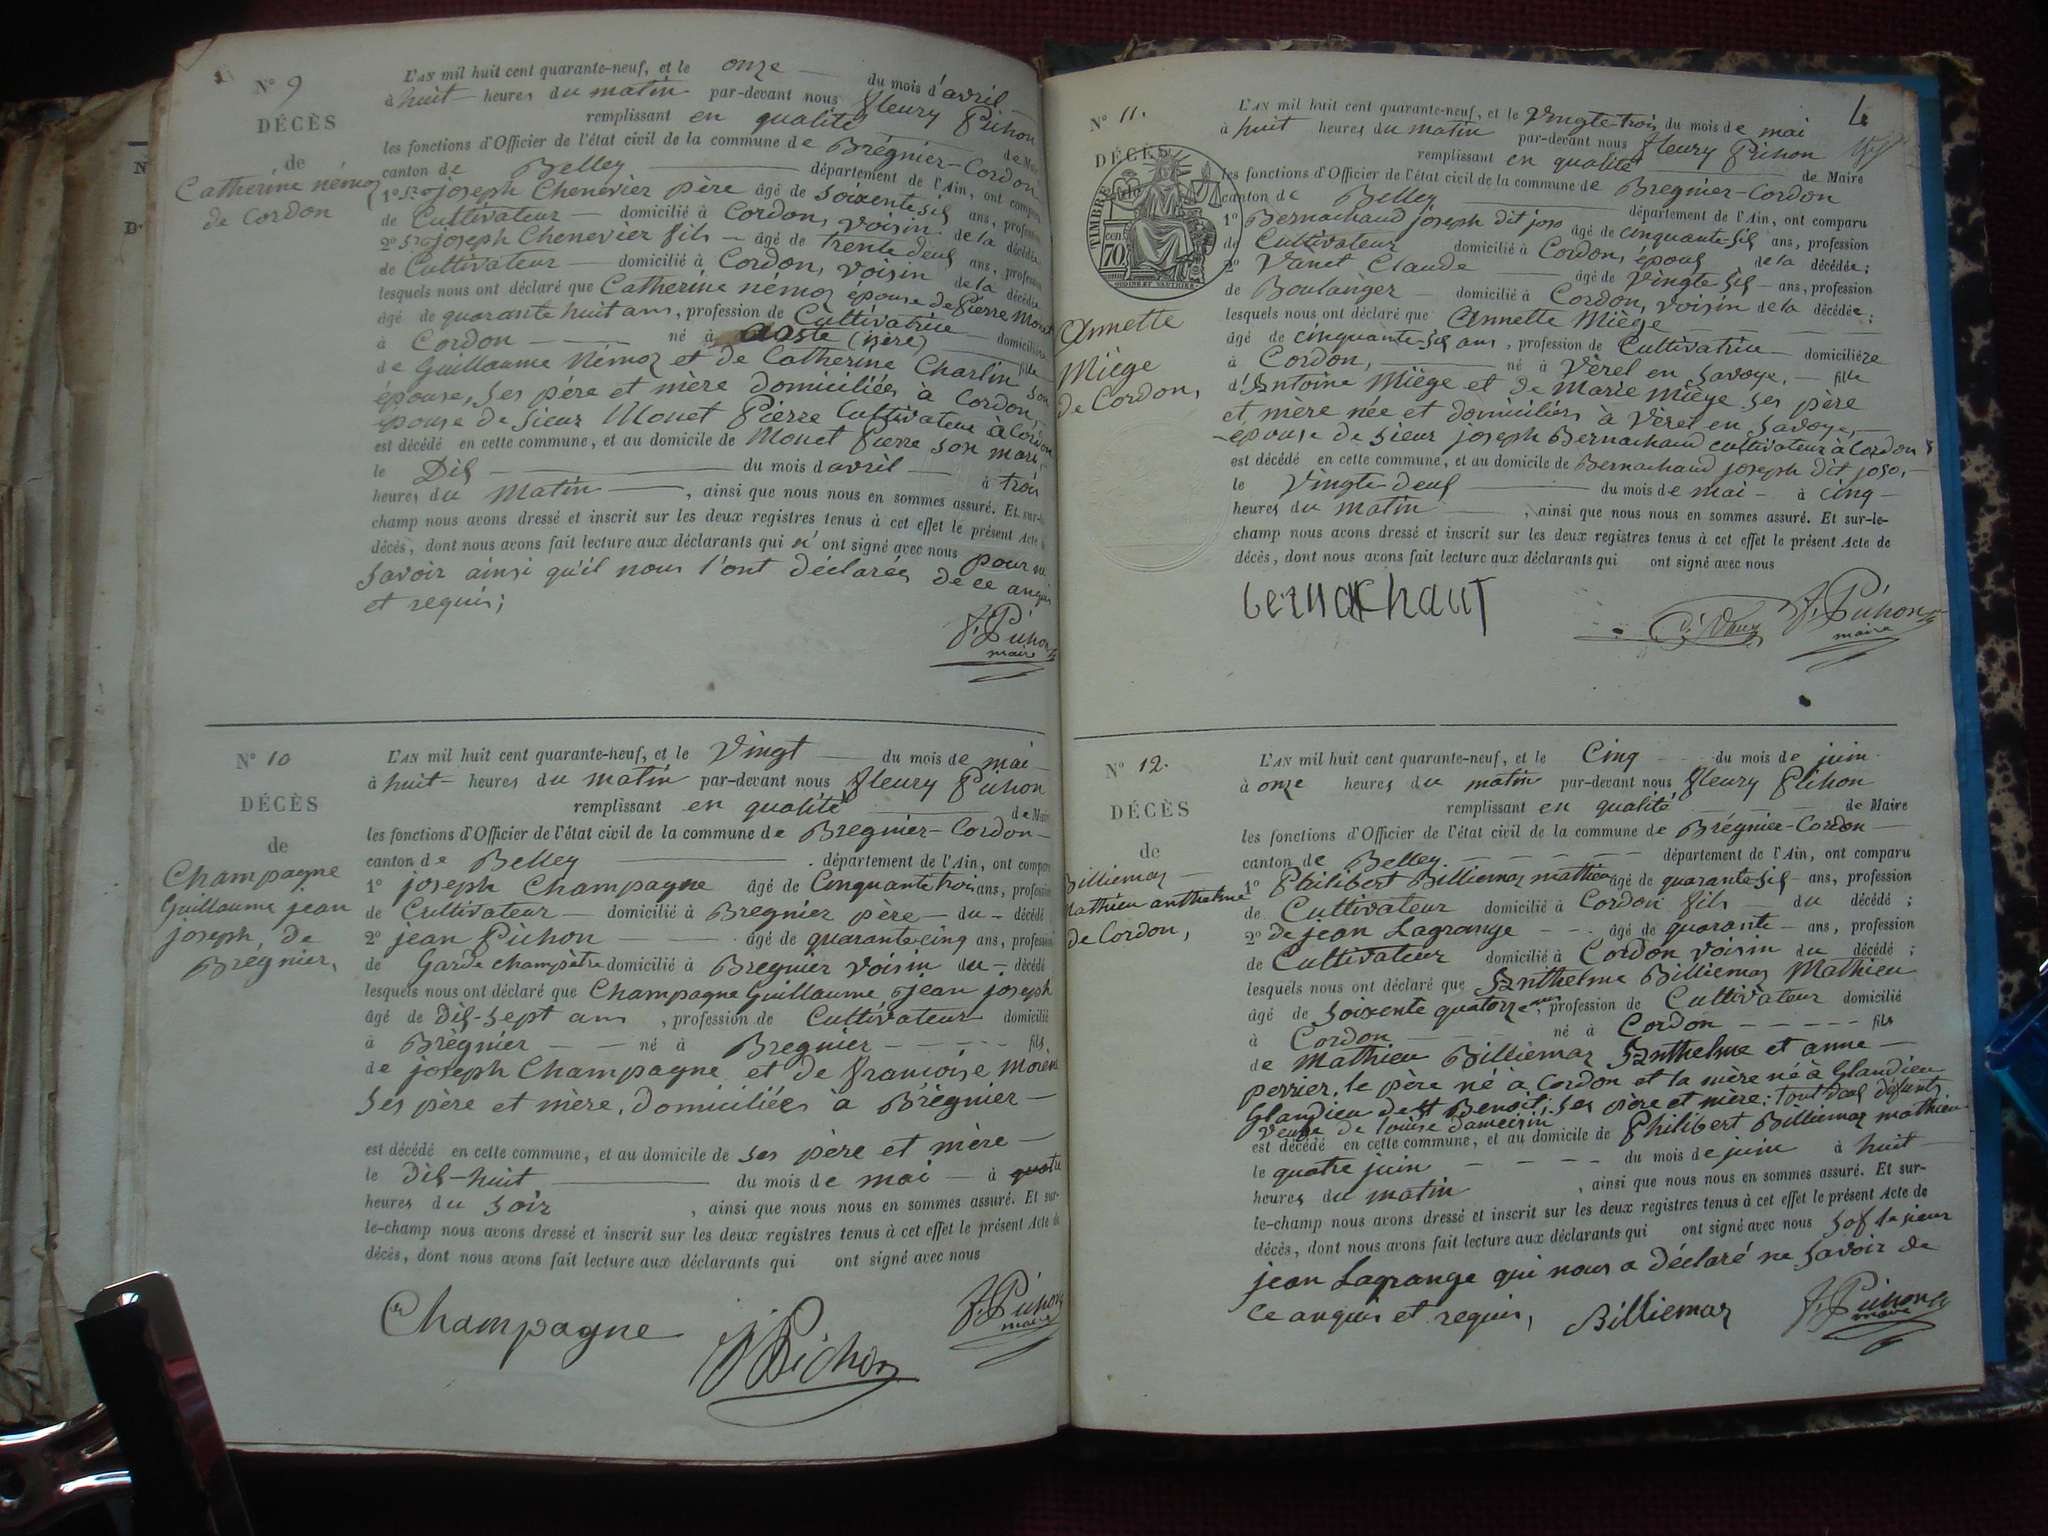 N° 9
DÉCÈS
de
Catherine némoz
de Cordon
L'AN mil huit cent quarante-neuf, et le onze du mois d'avril
à huit heures du matin par-devant nous fleury Pichon
remplissant en qualité de Maire
les fonctions d'Officier de l'état civil de la commune de Brégnier-Cordon
canton de Belley département de l'Ain, ont comparu
1° Sr joseph Chenevier père âgé de soixente sis ans, profession
de Cultivateur domicilié à Cordon, voisin de la décédée
2° Sr joseph Chenevier fils âgé de trente deus ans, profession
de Cultivateur domicilié à Cordon, voisin de la décédée
lesquels nous ont déclaré que Catherine némoz épouse de Pierre Monet
âgé de quarante huit ans, profession de Cultivatrice domiciliée
à Cordon né à Aoste (isère) fille
de Guillaume Némoz et de Catherine Charlin son
épouse, ses père et mère domiciliées à Cordon,
épouse de sieur Monet Pierre Cultivateur à Cordon
est décédé en cette commune, et au domicile de Monet Pierre son mari,
le Dis du mois d'avril à trois
heures du matin, ainsi que nous nous en sommes assuré. Et sur-le-
champ nous avons dressé et inscrit sur les deux registres tenus à cet effet le présent Acte de
décès, dont nous avons fait lecture aux déclarants qui n'ont signé avec nous pour ne
savoir ainsi qu'il nous l'ont déclarés de ce anquis
et requis;
f. Pichon
maire
N° 10
DÉCÈS
de
Champagne
Guillaume jean
joseph, de
Bregnier,
L'AN mil huit cent quarante-neuf, et le vingt du mois de mai
à huit heures du matin par-devant nous fleury Pichon
remplissant en qualité de Maire
les fonctions d'Officier de l'état civil de la commune de Bregnier-Cordon
canton de Belley département de l'Ain, ont comparu
1° joseph Champagne âgé de Cinquante trois ans, profession
de Cultivateur domicilié à Bregnier père du décédé
2° jean Pichon âgé de quarante-cinq ans, profession
de Garde champêtre domicilié à Bregnier voisin du décédé
lesquels nous ont déclaré que Champagne Guillaume, jean joseph
âgé de Dis-sept ans, profession de Cultivateur domicilié
à Brégnier né à Bregnier fils
de joseph Champagne et de françoise Morén
ses père et mère, domiciliées à Brégnier
est décédé en cette commune, et au domicile de ses père et mère
le Dis-huit du mois de mai à quatre
heures du soir, ainsi que nous nous en sommes assuré. Et sur-
le-champ nous avons dressé et inscrit sur les deux registres tenus à cet effet le présent Acte de
décès, dont nous avons fait lecture aux déclarants qui ont signé avec nous
Champagne
Pichon
f. Pichon
maire
4
N° 11.
DÉCÈS
TIMBRE
70
Annette
Miège
de Cordon,
L'AN mil huit cent quarante-neuf, et le vingte-trois du mois de mai
à huit heures du matin par-devant nous fleury Pichon
remplissant en qualité de Maire
les fonctions d'Officier de l'état civil de la commune de Bregnier-Cordon
canton de Belley département de l'Ain, ont comparu
1° Bernachaud joseph dit joso âgé de cinquante-sis ans, profession
de Cultivateur domicilié à Cordon, épous de la décédée;
2° Vanet Claude âgé de vingte sis ans, profession
de Boulanger domicilié à Cordon, voisin de la décédée;
lesquels nous ont déclaré que Annette Miège
âgé de cinquante-sis ans, profession de Cultivatrice domicilière
à Cordon, né à Vérel en Savoye, fille
d'Antoine Miège et de Marie Miège ses père
et mère née et domiciliés à Vérel en Savoye,
épouse de sieur joseph Bernachaud cultivateur à Cordon
est décédé en cette commune, et au domicile de Bernachaud joseph dit joso,
le vingte deus du mois de mai à cinq
heures du matin, ainsi que nous nous en sommes assuré. Et sur-le-
champ nous avons dressé et inscrit sur les deux registres tenus à cet effet le présent Acte de
décès, dont nous avons fait lecture aux déclarants qui ont signé avec nous
bernachaut
f. Pichon
maire
N° 12.
DÉCÈS
de
Billiemaz
Mathieu anthelme
de Cordon,
L'AN mil huit cent quarante-neuf, et le Cinq du mois de juin
à onze heures du matin par-devant nous fleury Pichon
remplissant en qualité de Maire
les fonctions d'Officier de l'état civil de la commune de Brégnier-Cordon
canton de Belley département de l'Ain, ont comparu
1° Philibert Billiemaz mathieu âgé de quarante-sis ans, profession
de Cultivateur domicilié à Cordon fils du décédé;
2° de jean Lagrange âgé de quarante ans, profession
de Cultivateur domicilié à Cordon voisin du décédé;
lesquels nous ont déclaré que Anthelme Billiemaz Mathieu
âgé de soixente quatorze ans, profession de Cultivateur domicilié
à Cordon né à Cordon fils
de Mathieu Billiemaz Anthelme et anne
perrier, le père né à Cordon et la mère né à Glandieu
Glandieu de St Benoit, ses père et mère; tout deus défunts
veufe de louise dameisin
est décédé en cette commune, et au domicile de Philibert Billiemaz mathieu
le quatre juin du mois de juin à huit
heures du matin, ainsi que nous nous en sommes assuré. Et sur-
le-champ nous avons dressé et inscrit sur les deux registres tenus à cet effet le présent Acte de
décès, dont nous avons fait lecture aux déclarants qui ont signé avec nous sof le sieur
jean Lagrange qui nous a déclaré ne savoir de
ce anquis et requis,
Billiemaz
f. Pichon
maire